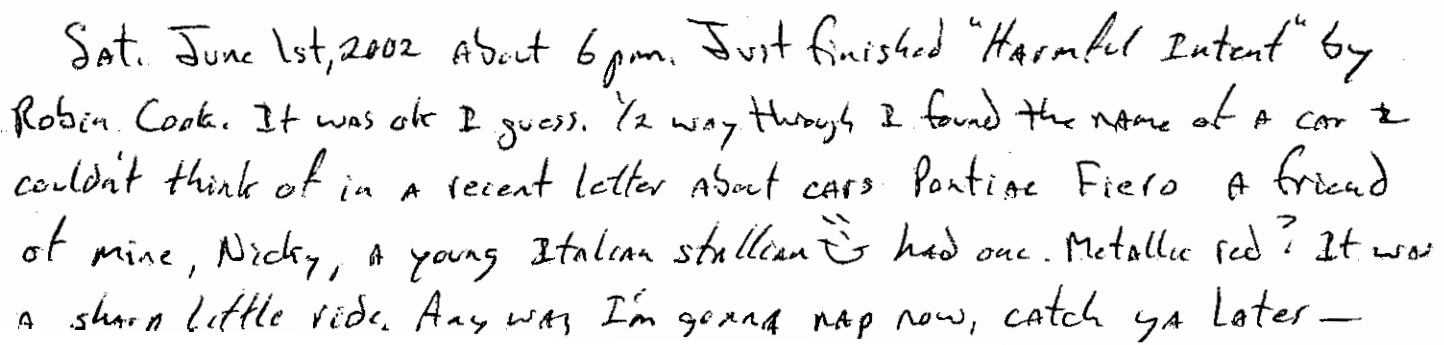 Sat. June 1st, 2002 About 6 pm. Just finished "Harmful Intent" by
Robin Cook. It was ok I guess. 1/2 way through I found the name of a car I
couldn't think of in a recent letter about cars Pontiac Fiero A friend
of mine, Nicky, a young Italian stallion had one. Metallic red? It was
a sharp little ride. Any way I'm gonna nap now, catch ya later —